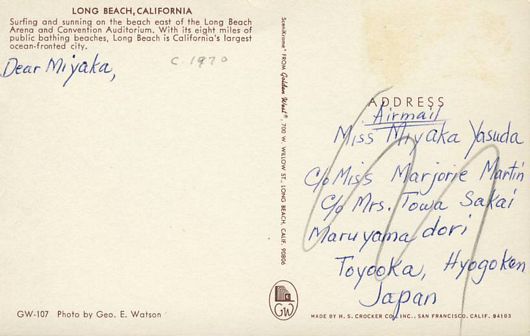 LONG BEACH, CALIFORNIA
Surfing and sunning on the beach east of the Long Beach
Arena and Convention Auditorium. With its eight miles of
public bathing beaches, Long Beach is California's largest
ocean-fronted city.
Dear Miyaka,
C. 1970
SceniKrome® FROM Golden West®, 700 W. WILLOW ST., LONG BEACH, CALIF. 90806
ADDRESS
Airmail
Miss Miyaka Yasuda
c/o Miss Marjorie Martin
c/o Mrs. Towa Sakai
Maruyama dori
Toyooka, Hyogoken
Japan
GW-107 Photo by Geo. E. Watson
GW
MADE BY H. S. CROCKER CO., INC., SAN FRANCISCO, CALIF. 94103